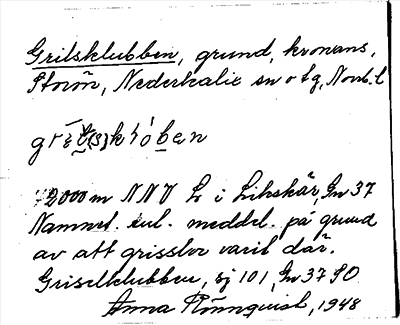 Grilsklubben, grund, kronans,
Storön, Nederkalix sn o tg, Norrb. l
2000 m NNV L. i Likskär, Gn 37
Namnet enl. meddel. på grund
av att grisslor varit där.
Griselklubben, sj 101, Gn 37 SO
Anna Rönnquist, 1948